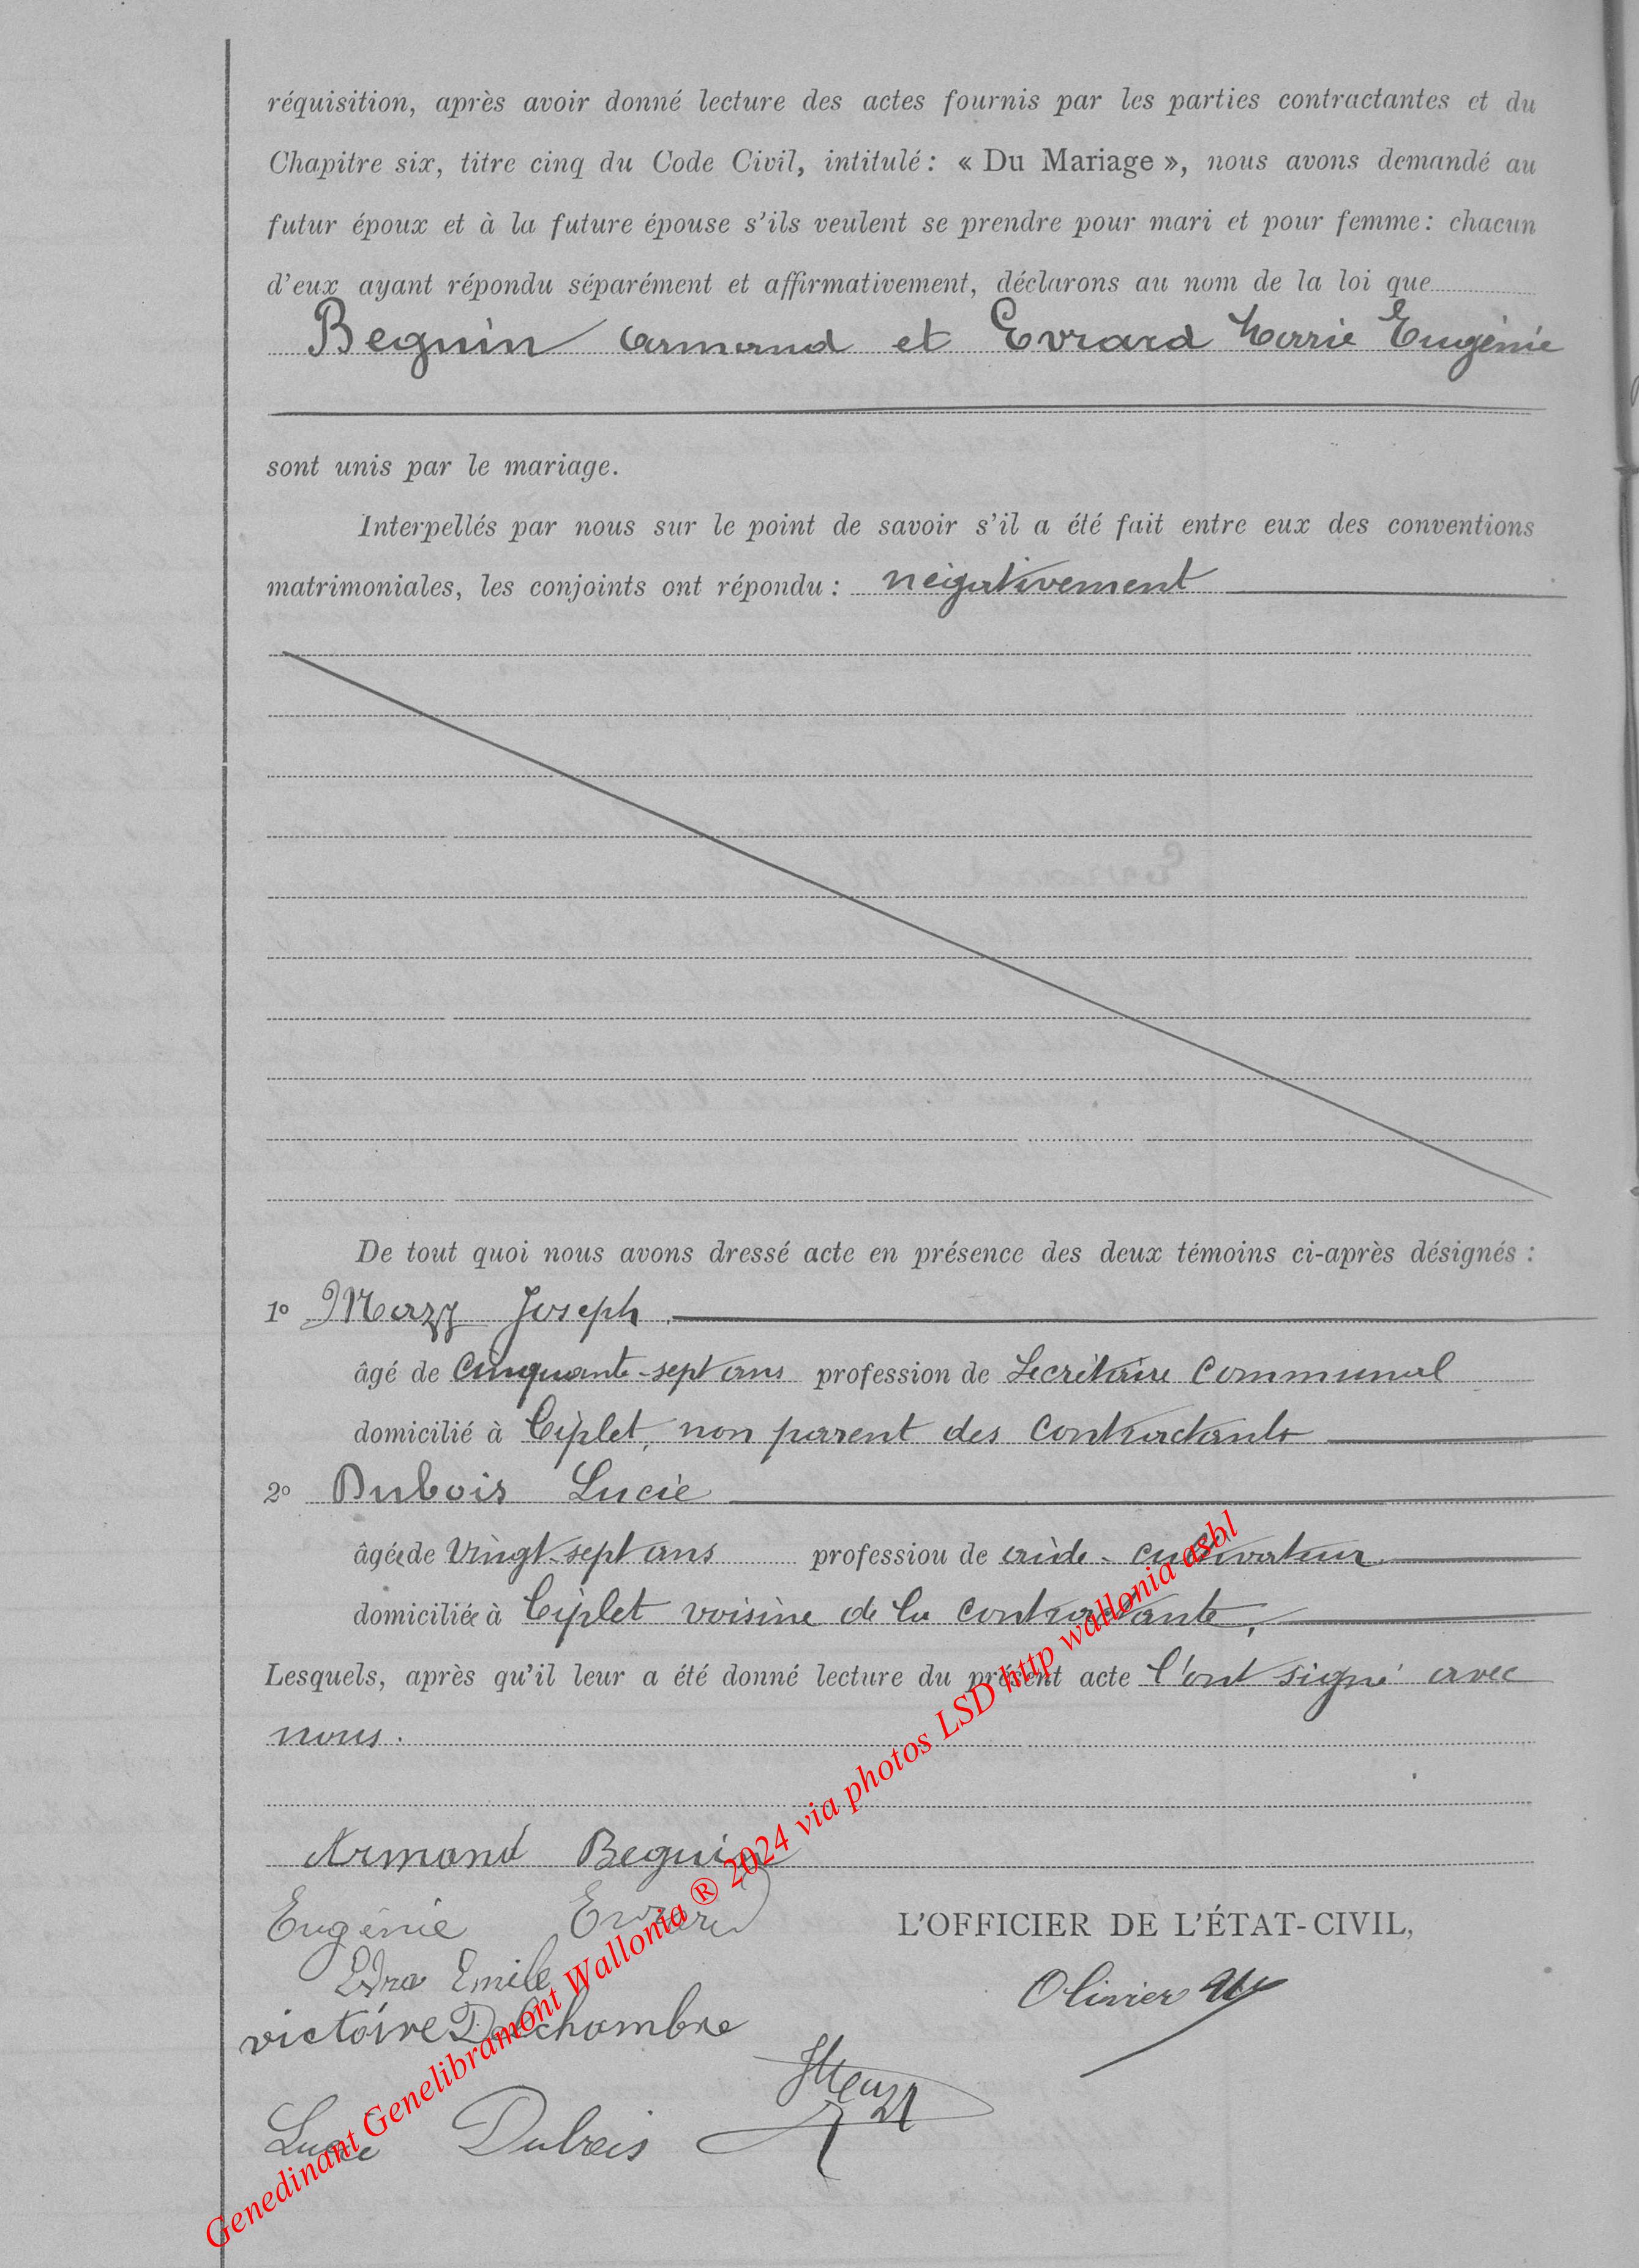 réquisition, après avoir donné lecture des actes fournis par les parties contractantes et du
Chapitre six, titre cinq du Code Civil, intitulé : « Du Mariage », nous avons demandé au
futur époux et à la future épouse s'ils veulent se prendre pour mari et pour femme : chacun
d'eux ayant répondu séparément et affirmativement, déclarons au nom de la loi que
Beguin Armand et Evrard Marie Eugénie
sont unis par le mariage.
Interpellés par nous sur le point de savoir s'il a été fait entre eux des conventions
matrimoniales, les conjoints ont répondu : négativement
De tout quoi nous avons dressé acte en présence des deux témoins ci-après désignés :
1° Mazy Joseph
âgé de cinquante-sept ans profession de Secrétaire Communal
domicilié à Ciplet, non parent des contractants
2° Dubois Lucie
âgée de vingt-sept ans profession de aide-cultivateur
domiciliée à Ciplet voisine de la contractante,
Lesquels, après qu'il leur a été donné lecture du présent acte l'ont signé avec
nous.
Armand Beguin
Eugénie Evrard
L'OFFICIER DE L'ÉTAT-CIVIL,
Emile
Olivier
victoire Delchambre
JMazy
Lucie Dubois
Genedinant Genelibramont Wallonia ® 2024 via photos LSD http wallonia asbl